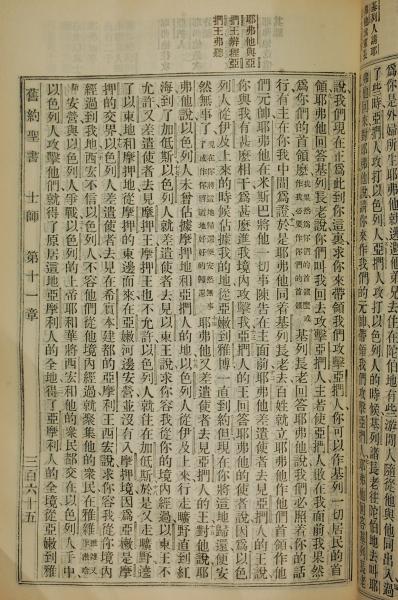 基列人請耶
是外婦所生耶弗他就逃避他弟兄去住在陀伯地有些游閒人隨從他與他同出入過
了些時亞捫人攻打以色列人亞捫人攻打以色列人的時候基列諸長老往陀伯地去叫耶
弗他回來對耶弗他說請你來作我們的元帥帶領我們攻擊亞捫人耶弗他回答基列長老
耶弗他與亞
捫王辯程亞
捫王弗聽
說我們現在正為此到你這裏求你來帶領我們攻擊亞捫人你可以作基列一切居民的首
領耶弗他回答基列長老說你們叫我回去攻擊亞捫人主若使亞捫人敗在我面前我果然
為你們的首領麼基列長老回答耶弗他說我們必照着你的話
行有主在你我中間為證於是耶弗他同着基列長老去百姓就立耶弗他作他們首領作他
們元帥耶弗他在米斯巴將他一切事陳告在主面前耶弗他差遣使者去見亞捫人的王說
你與我有甚麼相干為甚麼進我境內攻擊我亞捫人的王回答耶弗他的使者說因為以色
列人從伊及上來的時候佔據我的地從亞嫩到雅博一直到約但現在你將這地歸還便安
然無事了耶弗他又差遣使者去見亞捫人的王對他說耶
弗他說以色列人未曾佔據摩押地和亞捫人的地以色列人從伊及上來行走曠野直到紅
海到了加低斯以色列人就差遣使者去見以東王說求你容我從你的境內經過以東王不
允許又差遣使者去見摩押王摩押王也不允許以色列人就住在加低斯於是又走曠野遶
了以東地和摩押地從摩押的東邊而來在亞嫩河邊安營並沒有入摩押境因為亞嫩是摩
押的交界以色列人差遣使者去見在希實本建都的亞摩利王西宏說求你容我從你境內
經過到我地西宏不信以色列人不容他們從他境內經過就聚集他的衆民在雅雜
安營與以色列人爭戰以色列的上帝耶和華將西宏和他的衆民都交在以色列人手中
以色列人攻擊他們就得了原居這地亞摩利人的全地得了亞摩利人的全地從亞嫩到雅
舊約聖書 士師 第十一章 三百六十五